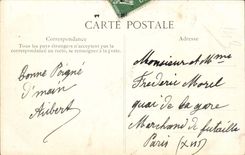 CARTE POSTALE
Correspondance
Tous les pays étrangers n'acceptent pas la
correspondance au recto, se renseigner à la poste.
Adresse
Bonne Poigné
d'main
Aubert
Monsieur et Mme
Frédéric Morel
quai de la gare
Marchand de futaille
Paris (XIII)